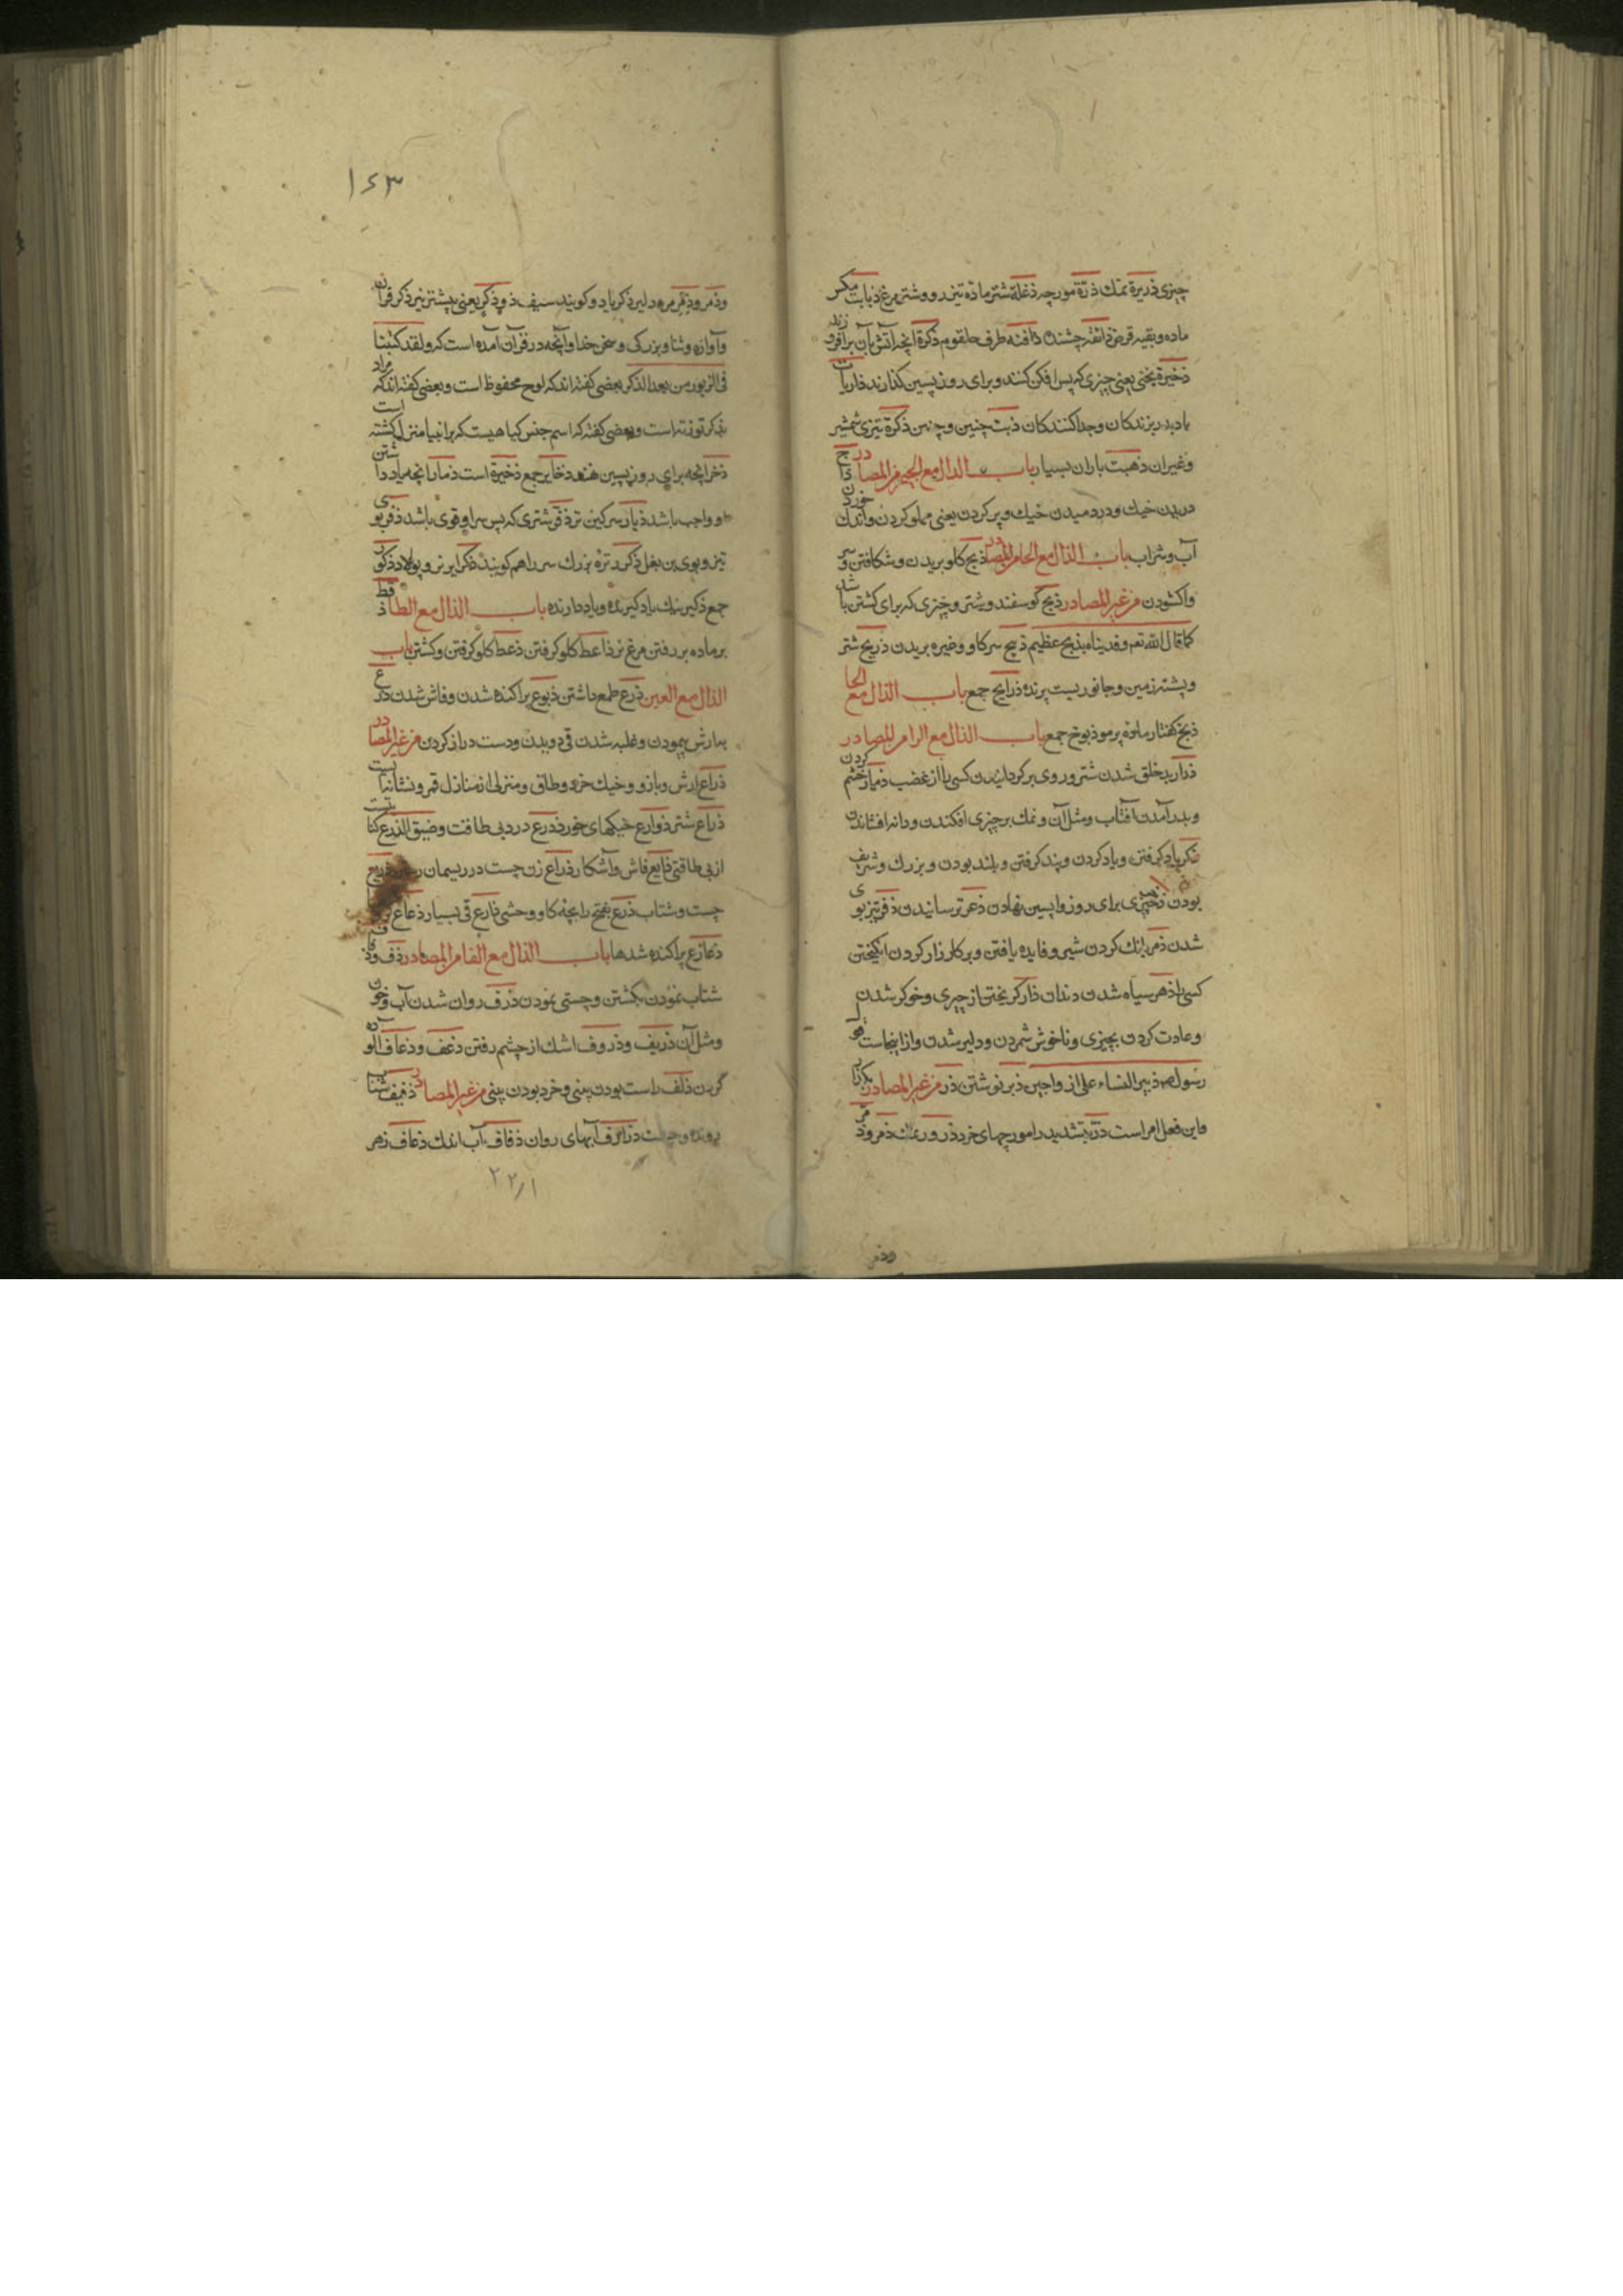 چیزی ذریرة نمك ذرّة مورچه ذعلبة شتر ماده تیزرو و شتر مرغ ذبابت مکس
ماده و بقیه قرض ذائقه چشنده ذاقنه طرف حلقوم ذکرة آنچه آتش بآن برافروزند
ذخیرة یخنی یعنی چیزی که پس افکن کنند و برای روز پسین کذارند ذاریات
بادبدر برندکان و جداکنندکان ذیت چنین و چنین ذکرة تیزی شمشیر
و غیر آن ذهبت باران بسیار باب الذال مع الجیم من المصادر ذاج
دریدن خیك و دردمیدن خیك و پر کردن یعنی مملو کردن و اندك خوردن
آب و شراب باب الذال مع الحا من المصادر ذبح کلو بریدن و شکافتن و سر
واکشودن من غیر المصادر ذبح کوسفند و شتر و چیزی که برای کشتن باشد
کما قال الله تعم و فدیناه بذبح عظیم ذبیح سر کاو و غیره بریدن ذریح شتر
و پشته زمین و جانوریست پرنده ذرایح جمع باب الذال مع الخا
ذیخ کفتار ماده پرمو ذیوخ جمع باب الذال مع الرا من المصادر
ذرار بدخلق شدن شتر و روی برکردانیدن کسی را از غضب ذیار خشم کردن
و بدر آمدن آفتاب و مثل آن و نمك بر چیزی افکندن و دانه افشاندن
ذکر یاد کرفتن و یاد کردن و پند کرفتن و بلند بودن و بزرك و شریف
بودن ذخر چیزی برای روز واپسین نهادن ذعر ترسانیدن ذفر تیز بوی
شدن ذمر بانك کردن شیر و فایده یافتن و بر کارزار کردن انکیختن
کسی را ذهر سیاه شدن دندان ذار کریختن از چیزی و خوکر شدن
و عادت کردن بچیزی و ناخوش شمردن و دلیر شدن و از اینجاست قول
رسول ص ذییر النساء علی ازواجهن ذبر نوشتن ذر من غیر المصادر بکذار
و این فعل امر است ذرّ بتشدید را مورچهای خرد ذرور نمك ذمر و ذمر
وذمر
۱۶۳
و ذمر و ذمر مرد دلیر ذکر یاد و کویند سیف ذو ذکر یعنی پیشتر نیز ذکر قرآن
و آوازه و ثنا و بزرکی و سخن خدا و آنچه در قرآن آمده است که و لقد کتبنا
فی الزبور من بعد الذکر بعضی کفته اند که لوح محفوظ است و بعضی کفته اند که مراد
بذکر توریة است و بعضی کفته که اسم جنس کتابهاست که بر انبیا منزل کشته است
ذخر آنچه برای روز پسین هند ذخایر جمع ذخیرة است ذمار آنچه یاد داشتن
و واجب باشد ذیار سرکین تر ذفر شتری که پس سر او قوی باشد ذفر بوی
تیز و بوی بن بغل ذکر و نره بزرك سر را هم کویند ذکر ایر نر و پولاد ذکور
جمع ذکیر نیك یاد کیرنده و یاد دارنده باب الذال مع الطا ذقط
بر ماده بر رفتن مرغ نر ذاعط کلو کرفتن ذعط کلو کرفتن و کشتن باب
الذال مع العین ذرع طمع داشتن ذیوع پراکنده شدن و فاش شدن ذرع
بارش پیمودن و غلبه شدن قی دویدن و دست دراز کردن من غیر المصادر
ذراع ارش و بازو و خیك خرد و طاق و منزلی از منازل قمر و نشانه ایست
ذراع شتر ذوارع خیکهای خورد ذرع درد بی طاقت و ضیق الذرع کنایتست
از بی طاقتی ذایع فاش و آشکار ذراع زن چست در ریسمان ذریع
چست و شتاب ذرع بفتح را بچه کاو وحشی ذارع قی بسیار ذعاع
ذعاذع پراکنده شدها باب الذال مع الفا من المصادر ذف و ذفاف
شتاب نمودن بکشتن و چستی نمودن ذرف روان شدن آب و خون
و مثل آن ذریف و ذروف اشك از چشم رفتن ذعف و ذعاف آلوده
کردن ذلف راست بودن بینی و خرد بودن بینی من غیر المصادر ذفیف شتاب
رونده و ذوارف آبهای روان ذفاف آب اندك ذعاف زهر
۲۲٫۱